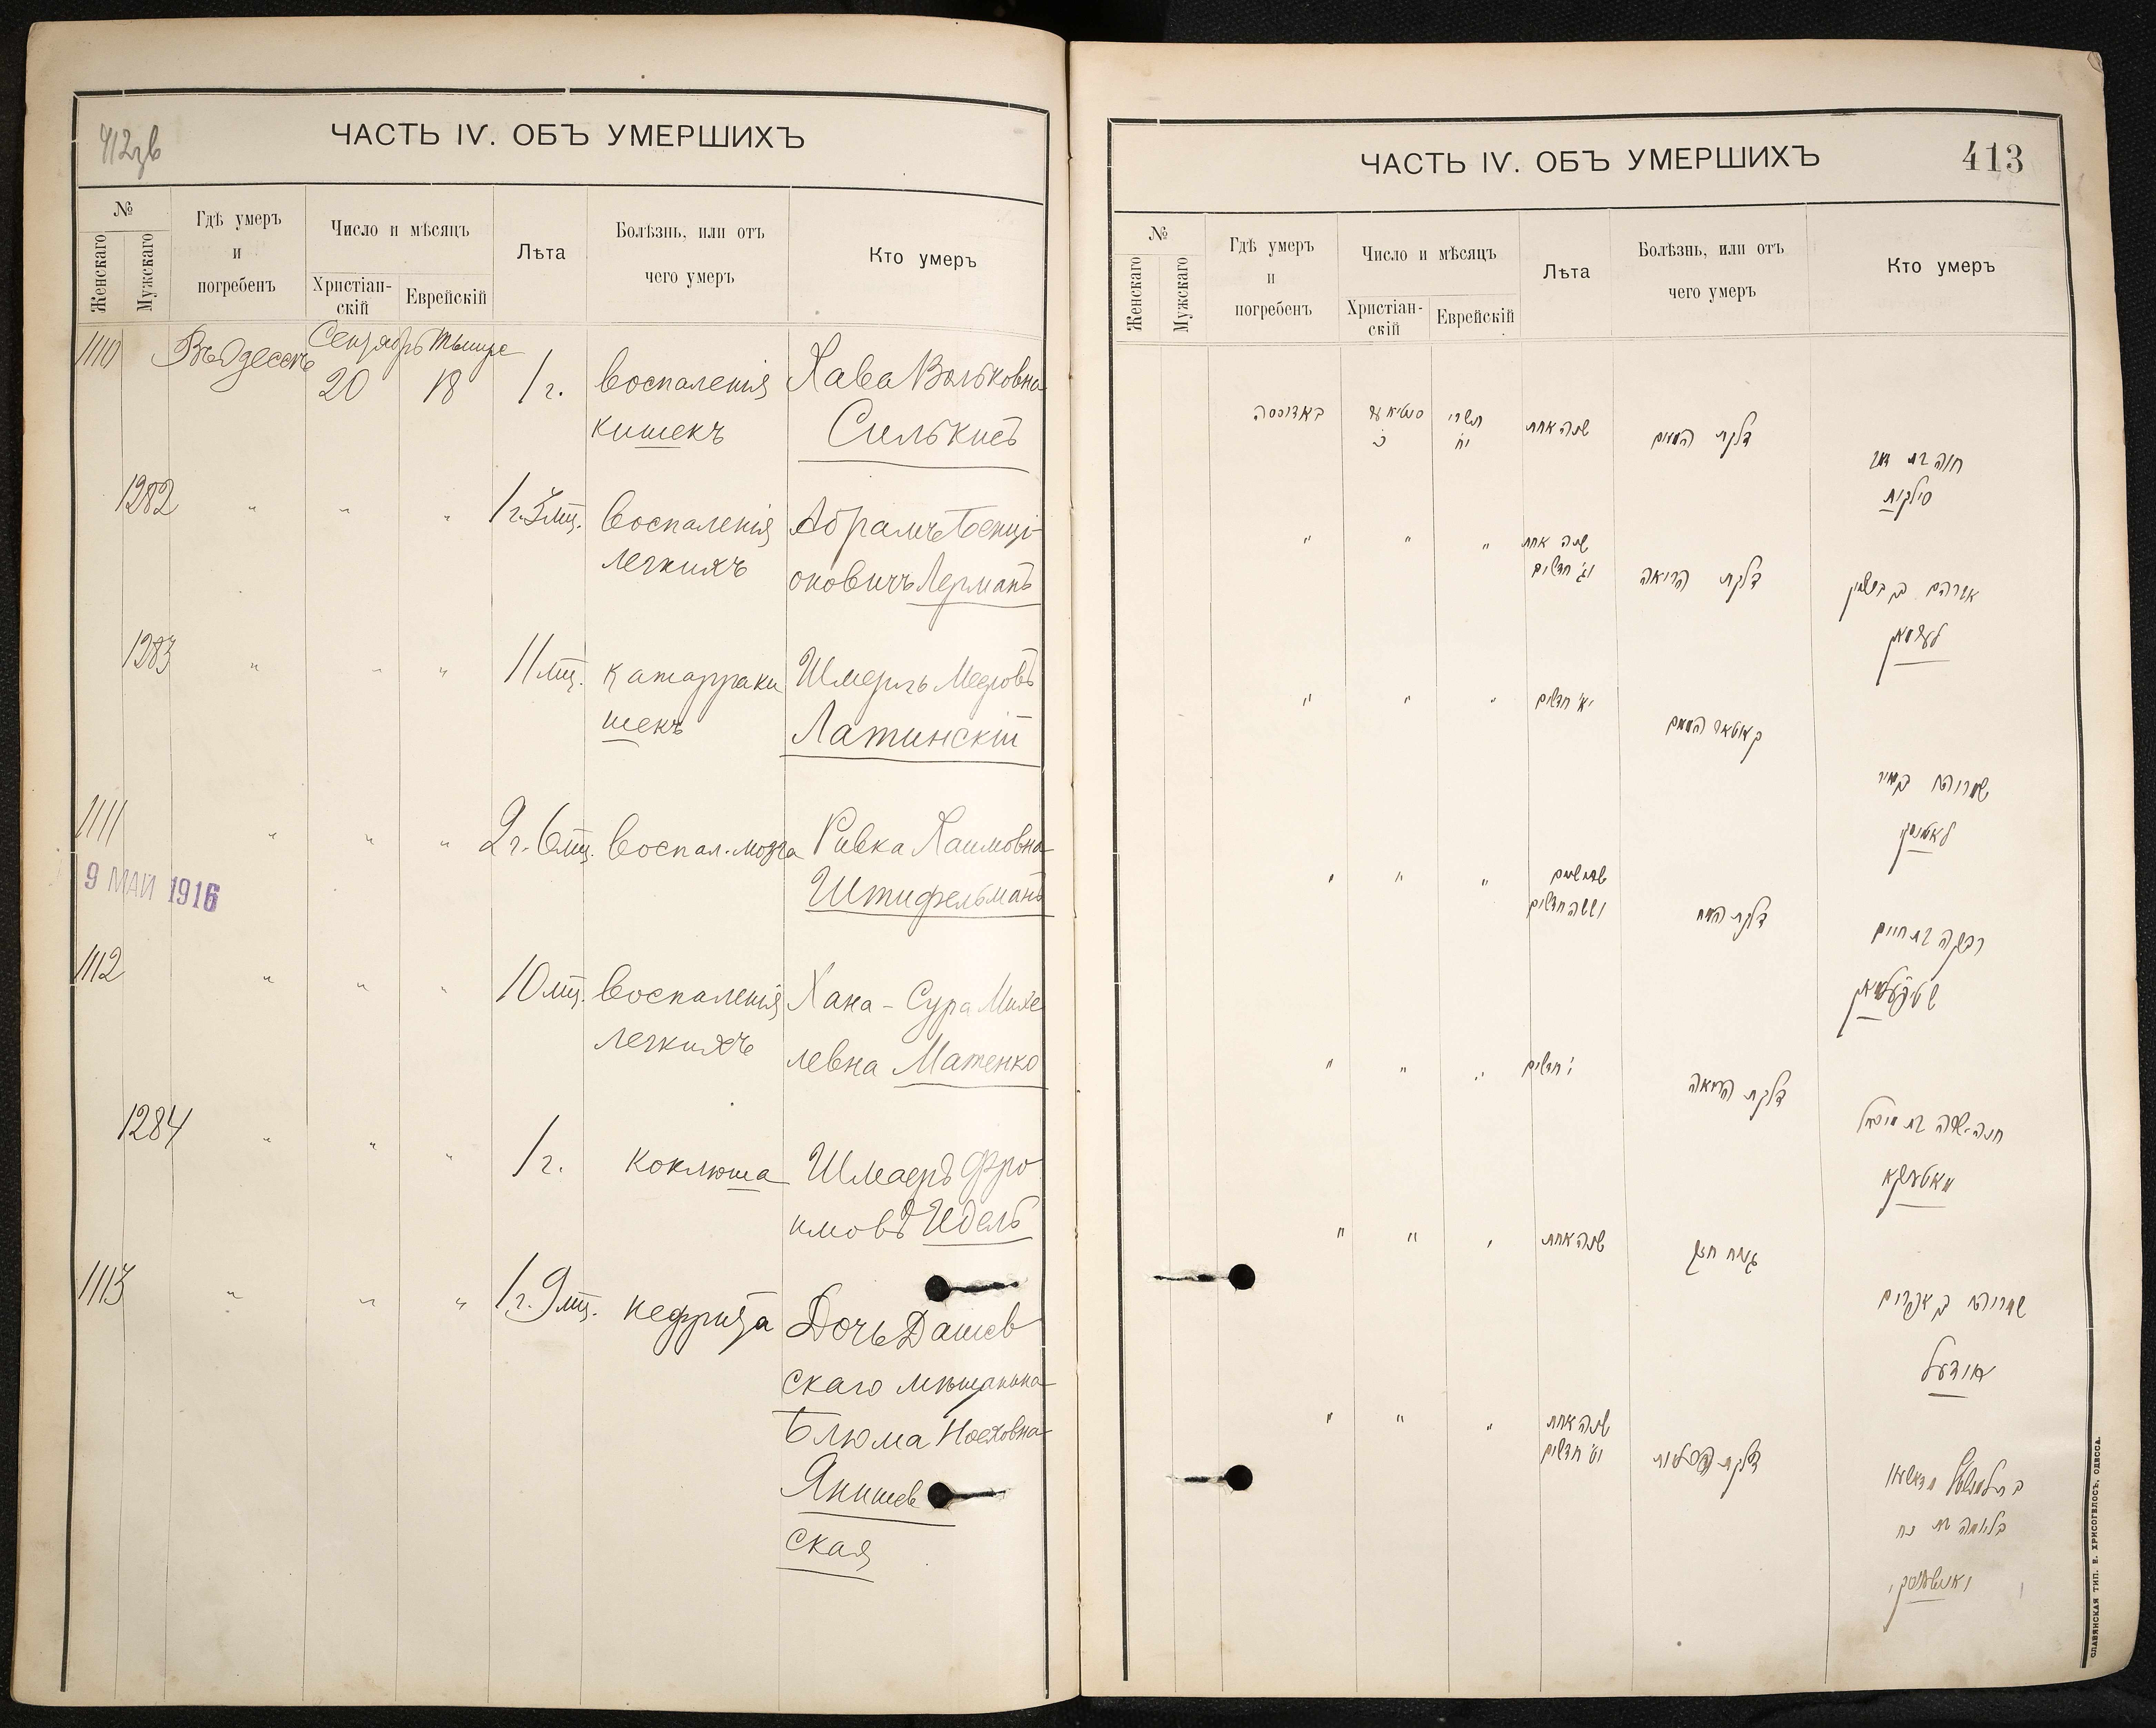 412зв
ЧАСТЬ IV. ОБЪ УМЕРШИХЪ
№
Женскаго
Мужскаго
Гдѣ умеръ
и
погребенъ
Число и мѣсяцъ
Христіан-
скій
Еврейскій
Лѣта
Болѣзнь, или отъ
чего умеръ
Кто умеръ
1110 Въ Одессѣ Сентябрь Тышре
20 18 1 г. воспаленія Хава Вольковна
кишекъ Силькисъ
1282 " " " 1 г. 3 мц. воспаленія Абрамъ Бенці-
легкихъ оновичъ Лерманъ
1283 " " " 11 мц. катарра ки Шмерль Меєровъ
шекъ Латинскій
1111 " " " 2 г. 6 мц. воспал. мозга Ривка Хаимовна
9 МАЙ 1916 Штифельманъ
1112 " " " 10 мц. воспаленія Хана - Сура Михе
легкихъ левна Матенко
1284 " " " 1 г. коклюша Фро
имовъ Идель
1113 " " " 1 г. 9 мц. нефрита Дочь Дашев
скаго мѣщанина
Блюма Ноеховна
Янишев
ская
ЧАСТЬ IV. ОБЪ УМЕРШИХЪ 413
№
Женскаго
Мужскаго
Гдѣ умеръ
и
погребенъ
Число и мѣсяцъ
Христіан-
скій
Еврейскій
Лѣта
Болѣзнь, или отъ
чего умеръ
Кто умеръ
באדוססה תשרי שנה אחת דלקת המעים
כ יח
חוה בת
סילקיס
" " " שנה אחת
וג' חדשים דלקת הריאה אברהם בן בנציון
לערמאן
" " " יא' חדשים קאטאר המעים
לאטינסקי
" " " שנתים
וששה חדשים דלקת המח רבקה בת חיים
שטיפעלמאן
" " " י' חדשים דלקת הריאה
חנה-שרה בת מיכאל
מאטענקא
" " " שנה אחת
בן אפרים
אידעל
" " " שנה אחת
וט' חדשים דלקת הכליות
בלומה בת נח
יאנישעווסקי
СЛАВЯНСКАЯ ТИП. Е. ХРИСОГЕЛОСЪ, ОДЕССА.